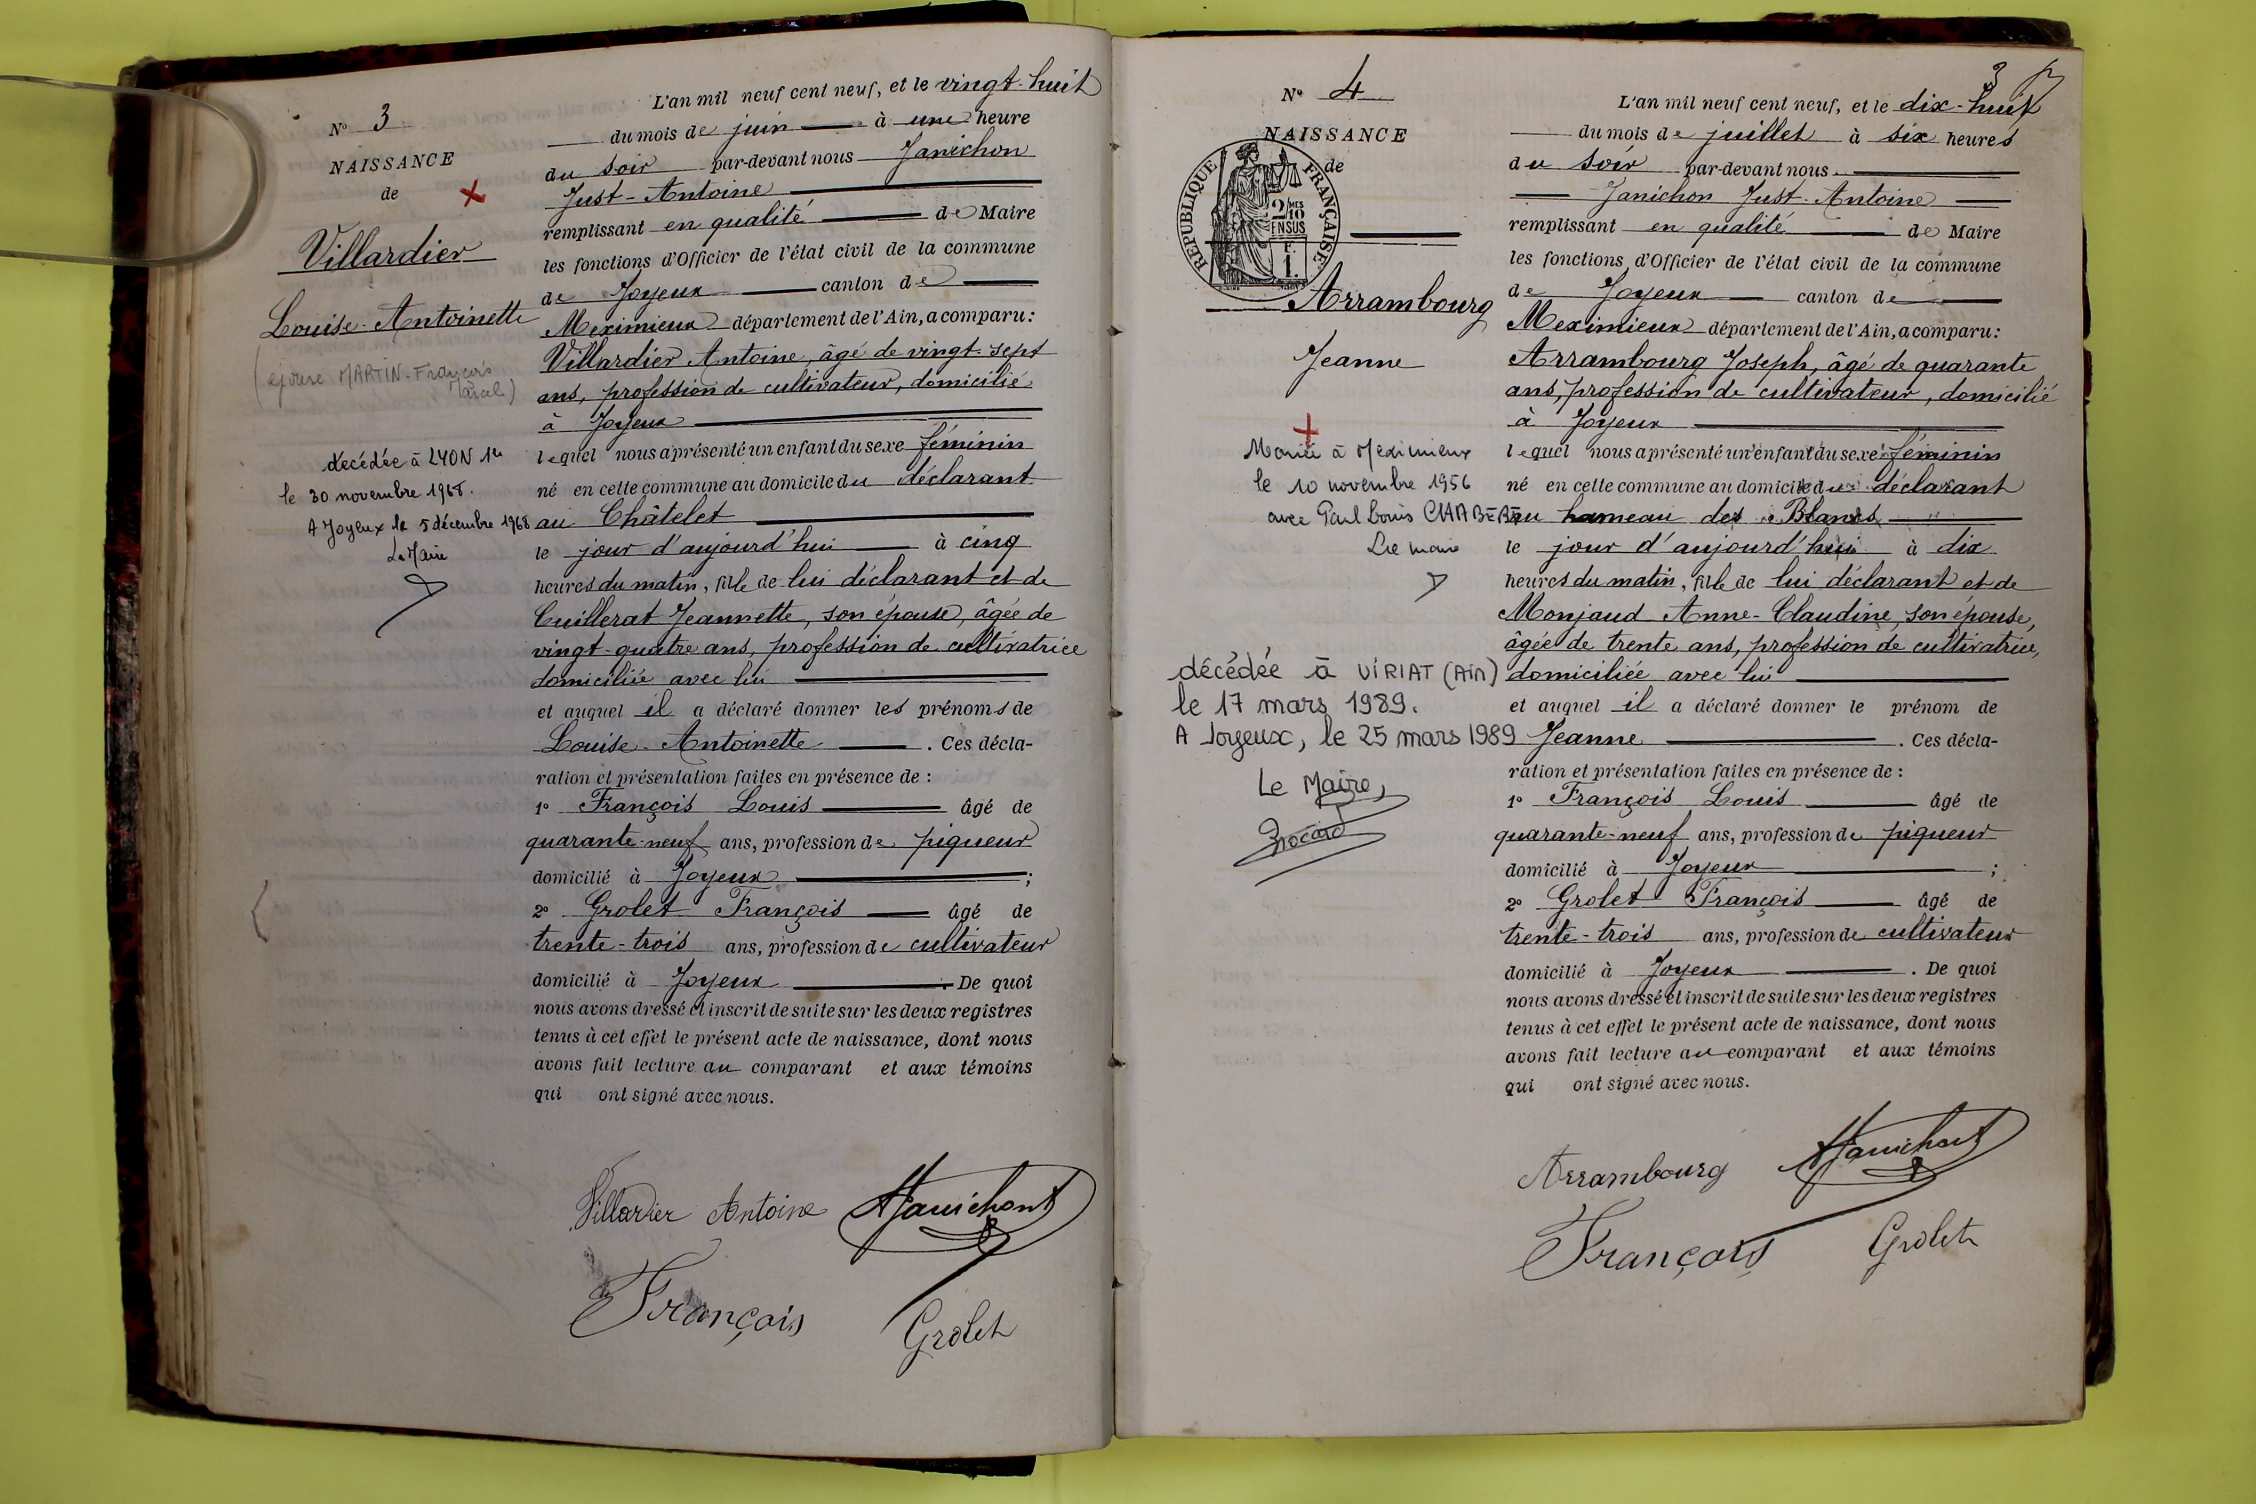 N° 3
NAISSANCE
de
Villardier
Louise-Antoinette
(épouse MARTIN-François
Marcel)
décédée à LYON 1er
le 30 novembre 1968.
A Joyeux le 5 décembre 1968
Le Maire
L'an mil neuf cent neuf, et le vingt-huit
du mois de juin à une heure
du soir par-devant nous Janichon
Just-Antoine
remplissant en qualité de Maire
les fonctions d'Officier de l'état civil de la commune
de Joyeux canton de
Meximieux département de l'Ain, a comparu:
Villardier Antoine, âgé de vingt-sept
ans, profession de cultivateur, domicilié
à Joyeux
lequel nous a présenté un enfant du sexe féminin
né en cette commune au domicile du déclarant
au Châtelet
le jour d'aujourd'hui à cinq
heures du matin, fille de lui déclarant et de
Cuillerat Jeannette, son épouse, âgée de
vingt-quatre ans, profession de cultivatrice
domiciliée avec lui
et auquel il a déclaré donner les prénoms de
Louise-Antoinette. Ces décla-
ration et présentation faites en présence de:
1° François Louis âgé de
quarante-neuf ans, profession de piqueur
domicilié à Joyeux;
2° Grolet François âgé de
trente-trois ans, profession de cultivateur
domicilié à Joyeux. De quoi
nous avons dressé et inscrit de suite sur les deux registres
tenus à cet effet le présent acte de naissance, dont nous
avons fait lecture au comparant et aux témoins
qui ont signé avec nous.
Villardier Antoine Janichon
François Grolet
3
N° 4
NAISSANCE
de
RÉPUBLIQUE FRANÇAISE
2/10 MES
EN SUS
F.
1.
Arrambourg
Jeanne
Mariée à Meximieux
le 10 novembre 1956
avec Paul Louis CHABERT
Le maire
décédée à VIRIAT (Ain)
le 17 mars 1989.
A Joyeux, le 25 mars 1989
Le Maire,
Brocard
L'an mil neuf cent neuf, et le dix-huit
du mois de juillet à six heures
du soir par-devant nous
Janichon Just-Antoine
remplissant en qualité de Maire
les fonctions d'Officier de l'état civil de la commune
de Joyeux canton de
Meximieux département de l'Ain, a comparu:
Arrambourg Joseph, âgé de quarante
ans, profession de cultivateur, domicilié
à Joyeux
lequel nous a présenté un enfant du sexe féminin
né en cette commune au domicile du déclarant
au hameau des Blancs
le jour d'aujourd'hui à dix
heures du matin, fille de lui déclarant et de
Monjaud Anne-Claudine, son épouse,
âgée de trente ans, profession de cultivatrice,
domiciliée avec lui
et auquel il a déclaré donner le prénom de
Jeanne. Ces décla-
ration et présentation faites en présence de:
1° François Louis âgé de
quarante-neuf ans, profession de piqueur
domicilié à Joyeux;
2° Grolet François âgé de
trente-trois ans, profession de cultivateur
domicilié à Joyeux. De quoi
nous avons dressé et inscrit de suite sur les deux registres
tenus à cet effet le présent acte de naissance, dont nous
avons fait lecture au comparant et aux témoins
qui ont signé avec nous.
Arrambourg Janichon
François Grolet